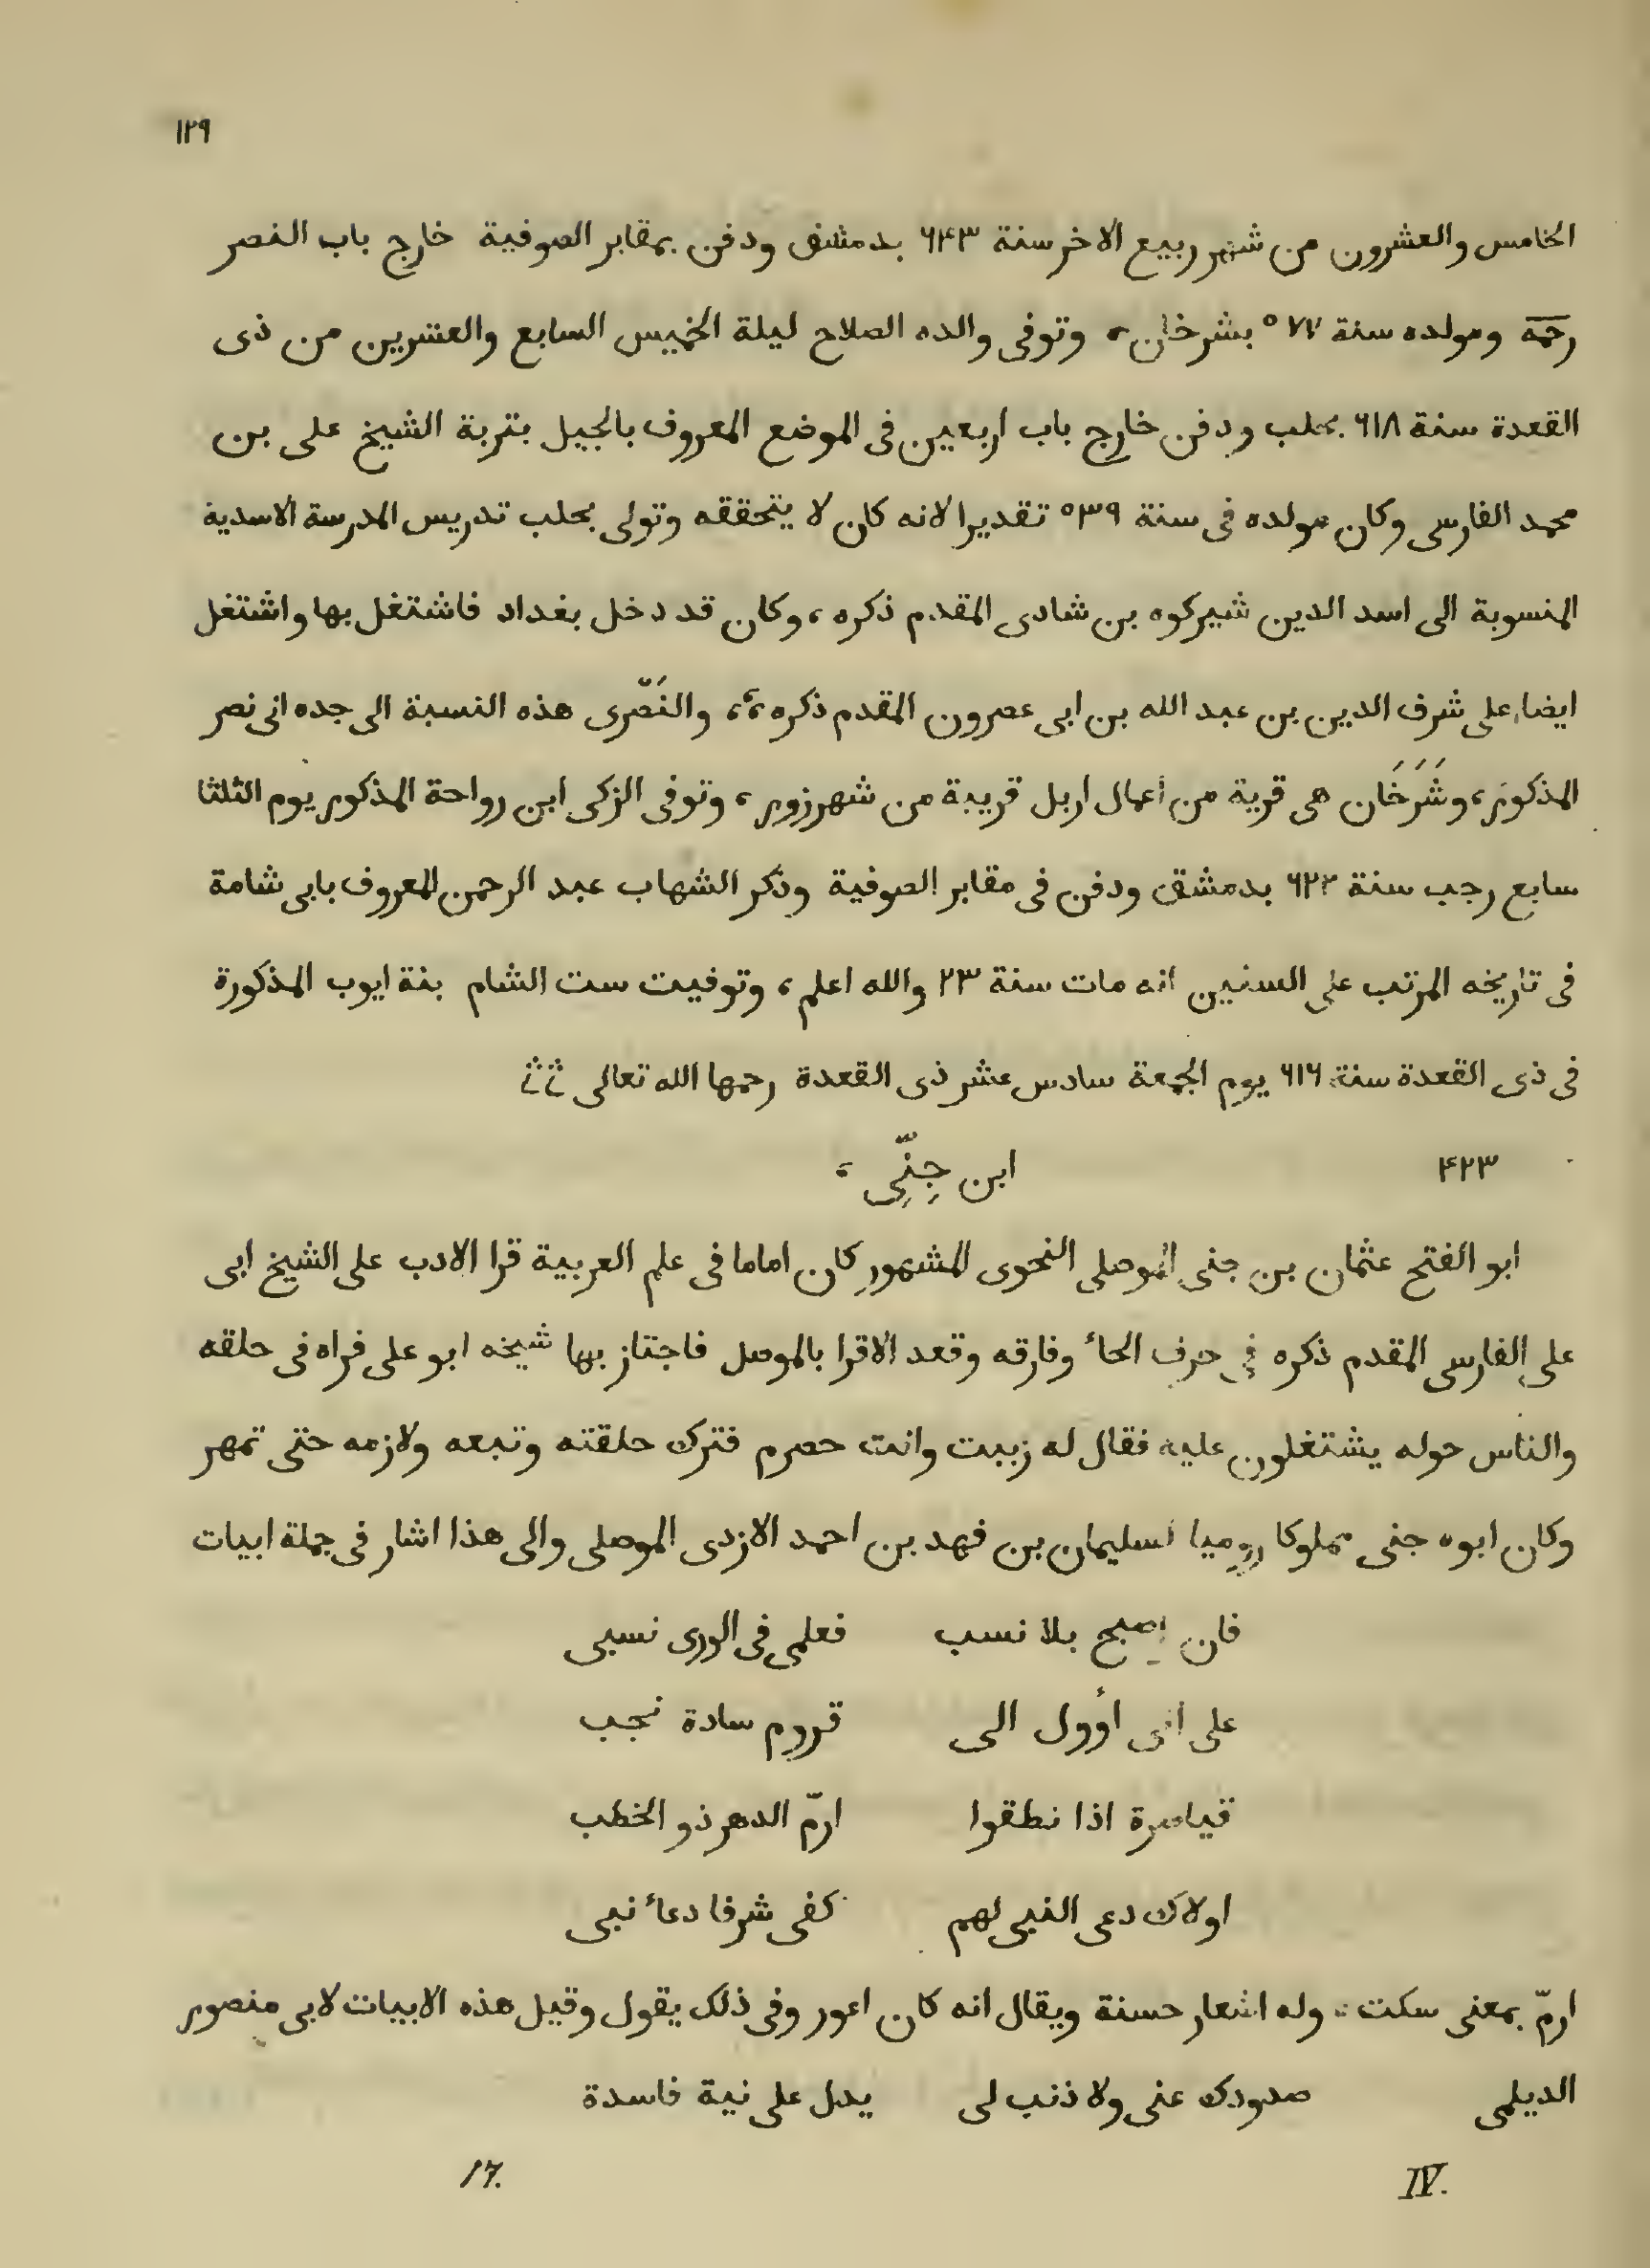 ١٢٩
الخامس والعشرون من شهر ربيع الاخر سنة ٦۴٣ بدمشق ودفن بمقابر الصوفية خارج باب النصر
رحمه ومولده سنة ٥٧٧ بشرخان، وتوفى والده الصلاح ليلة الخميس السابع والعشرين من ذى
القعدة سنة ٦١٨ بحلب ودفن خارج باب اربعين فى الموضع المعروف بالجبيل بتربة الشيخ على بن
محمد الفارسى وكان مولده فى سنة ٥٣٩ تقديرا لانه كان لا يتحققه وتولى بحلب تدريس المدرسة الاسدية
المنسوبة الى اسد الدين شيركوه بن شادى المقدم ذكره، وكان قد دخل بغداد فاشتغل بها واشتغل
ايضا على شرف الدين بن عبد الله بن ابى عصرون المقدم ذكره،،، والنَصّرى هذه النسبة الى جده ابى نصر
المذكور، وشَرَخَان هى قرية من أعمال اربل قريبة من شهرزور، وتوفى الزكى ابن رواحة المذكور يوم الثلثا
سابع رجب سنة ٦٢٢ بدمشق ودفن فى مقابر الصوفية وذكر الشهاب عبد الرحمن المعروف بابى شامة
فى تاريخه المرتب على السنين انه مات سنة ٢٣ والله اعلم، وتوفيت ست الشام بنة ايوب المذكورة
فى ذى القعدة سنة ٦١٦ يوم الجمعة سادس عشر ذى القعدة رحمها الله تعالى
۴٢٣ ابن جِنِّى،
ابو الفتح عثمان بن جنى الموصلى النحوى المشهور كان اماما فى علم العربية قرا الادب على الشيخ ابى
على الفارسى المقدم ذكره فى حرف الحاء وفارقه وقعد الاقرا بالموصل فاجتاز بها شيخه ابو على فراه فى حلقه
والناس حوله يشتغلون عليه فقال له زببت وانت حصرم فترك حلقته وتبعه ولازمه حتى تمهر
وكان ابوه جنى مملوكا روميا لسليمان بن فهد بن احمد الازدى الموصلى والى هذا اشار فى جملة ابيات
فان اصبح بلا نسب فعلمى فى الورى نسبى
على انى أوول الى قروم سادة نجب
قياصرة اذا نطقوا ارمّ الدهر ذو الخطب
اولاك دعى النبى لهم كفى شرفا دعاء نبى
ارمّ بمعنى سكت، وله اشعار حسنة ويقال انه كان اعور وفى ذلك يقول وقيل هذه الابيات لابى منصور
الديلمى صدودك عنى ولا ذنب لى يدل على نية فاسدة
IV. 17.